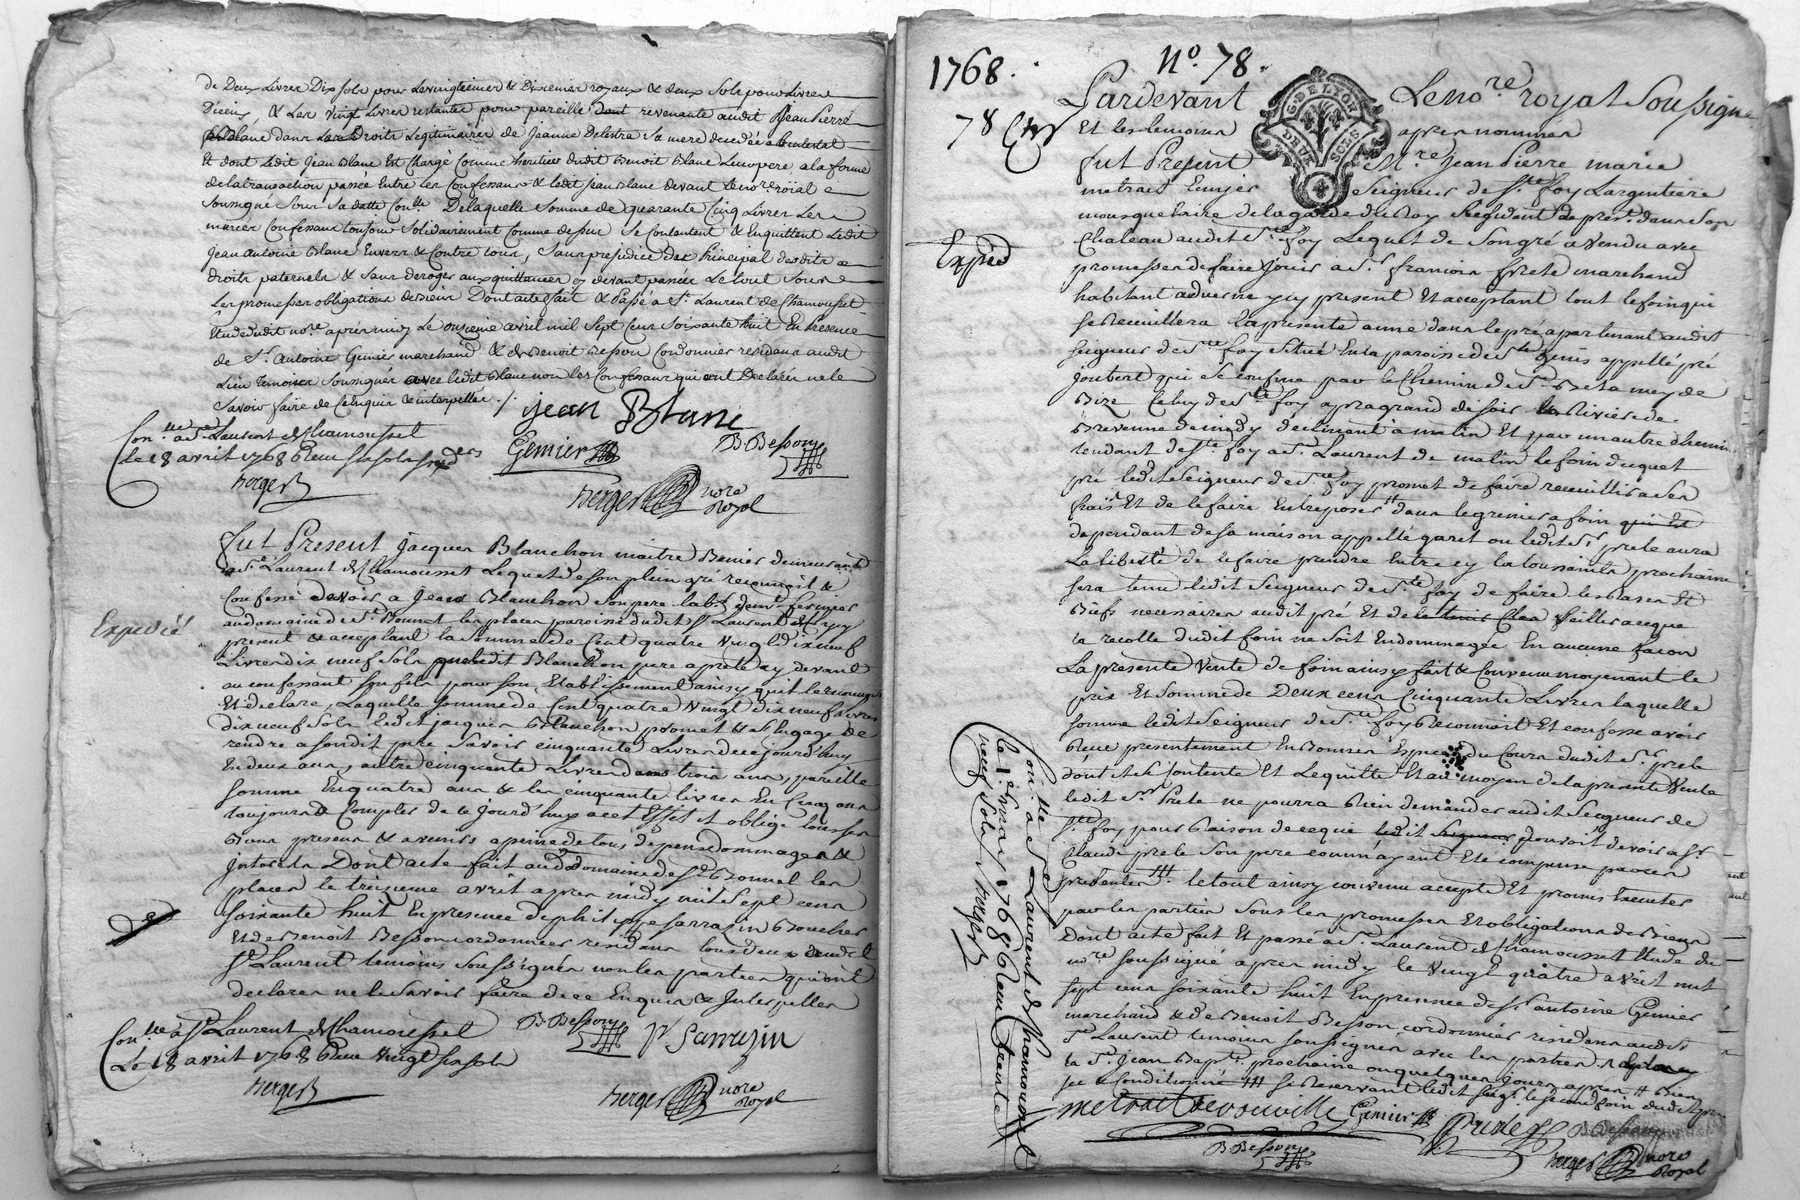 de Deux Livres Dix sols pour Levingtieme & Dixieme royaux & deux Sols pour Livre
D'iceux, & Les Vingt Livres restantes pour pareille revenante audit Jean Pierre
Blanc dans Les Droits Legitimaires de Jeanne Delestra Sa mere decedée abintestat
Et dont Ledit Jean Blanc Est Chargé Comme heritier dudit Benoit Blanc Leur pere, a la forme
de la transaction passée Entre les Confessans & ledit Jean Blanc devant Le nore. Roïal
Soussigné Sous Sa datte Conlle. De laquelle Somme de quarante Cinq Livres Les
mariés Confessans toujour Solidairement Comme dessus Se Contentent & Enquittent Ledit
Jean Antoine Blanc Envers & Contre tous, Sans prejudice du Principal desdits
droits paternels & Sans deroger aux quittances cy devant passées Le tout Sous
Les promesses obligations de Biens Dont acte fait & Passé a St. Laurent de Chamousset
Etude dudit nore. après midy Le onzieme avril mil Sept Cent Soixante huit En Presence
de Sr. Antoine Gemier marchand & de Benoit Besson Cordonnier residans audit
Lieu temoins Soussignés avec ledit Blanc non les Confessans qui ont Declarés ne le
Savoir faire de Ce Enquis & interpellés ./.
Jean Blanc
Conlle. a St. Laurent de Chamousset
Le 18 avril 1768 Reçu
Gemier
B. Besson
Berger
Berger nore Royal
fut Present Jacques Blanchon maitre demeurant
a St. Laurent de Chamousset Lequel de son plein gré reconnoit &
Confesse devoir a Jean Blanchon Son pere fermier
au domaine de St. Bonnet les places paroisse dudit St. Laurent
present & acceptant la Somme de Cent quatre Vingt Dix neuf
Livres dix neuf Sols que ledit Blanchon pere a prete cy devant
au confessant Son fils pour Son Etablissement ainsy quil le reconnoit
Et declare, Laquelle Somme de Cent quatre Vingt dix neuf Livres
dix neuf Sols ledit Jacques Blanchon promet & s'Engage de
rendre a Sondit pere Savoir cinquante Livres de ce jourd'huy
En deux ans, autre cinquante Livres dans trois ans, pareille
Somme En quatre ans & les cinquante livres En Cinq ans
toujours a Compter de ce Jourd'huy a cet Effet il oblige tous ses
Biens presens & avenirs a peine de tous depens dommages &
Interets Dont acte fait au domaine de St. Bonnet les
places le treizieme avril apres midy mil Sept cens
Soixante huit En presence de philippe Sarrazin Boucher
Et de Benoit Besson cordonnier residans tous deux audit
St. Laurent temoins Soussignés non les parties qui ont
declares ne le Savoir faire de ce Enquis & Interpellés
Expedié
Conlle. a St. Laurent de Chamousset
Le 18 avril 1768 Reçu Vingt Six Sols
B. Besson
P Sarrazin
Berger
Berger nore Royal
1768. No. 78.
78
Pardevant Le nore. royal Soussigné
Et les temoins apres nommés
fut Present Mre. Jean Pierre marie
metrait Ecuyer Seigneur de Ste. foy Largentiere
mousquetaire de la garde du Roy Residant de prest. dans Son
Chateau audit Ste. foy Lequel de Son gré a vendu avec
promesses de faire Jouir a Sr. francois prete marchand
habitant a cy present Et acceptant tout le foin qui
Se Receuillera la presente anné dans le pré apartenant audit
Seigneur de Ste. foy Situé En la paroisse de St. Genis appellé pré
Joubert qui Se confine par le Chemin de
Bize Celuy de Ste. foy a de Soir La Riviere de
Brevenne de midy declinant a matin Et par un autre chemin
tendant de Ste. foy a St. Laurent de matin le foin duquel
pré ledit Seigneur de Ste. foy promet de faire receuillir a Ses
frais Et de le faire Entreposer dans le grenier a foin qui Est
dependant de Sa maison appellé garet ou ledit Sr. prete aura
La liberté de le faire prendre Entre cy la toussaints prochaine
Sera tenu ledit Seigneur de Ste. foy de faire les Rases Et
Biefs necessaires audit pré Et de Veiller a ceque
la recolte dudit foin ne Soit Endommagée En aucune facon
La presente Vente de foin ainsy fait & Convenu moyenant le
prix Et Somme de Deux cens Cinquante Livres laquelle
Somme ledit Seigneur de Ste. foy Reconnoit Et confesse avoir
Reçue presentement En Bonnes Especes du Cours dudit Sr. prete
dont il Se Contente Et Lequitte Et au moyen de la presente Vente
ledit Sr. Prete ne pourra Rien demander audit Seigneur de
Ste. foy pour Raison de ceque pouvoit devoir a Sr.
Claude prete Son pere
presentes le tout ainsy convenu accepté Et promis Executer
par les parties Sous les promesses Et obligations de Biens
Dont acte fait Et passé a St. Laurent de Chamousset Etude du
nore. Soussigné apres midy le Vingt quatre avril mil
Sept cens Soixante huit En presence de Sr. antoine Gemier
marchand & de Benoit Besson cordonnier residans audit
St. Laurent temoins Soussignés avec les parties
la St. Jean Bapt. prochaine ou quelques jours apres
Se Reservant ledit Seigr. le Second foin dudit pré
Expedié
Conlle. a St. Laurent de Chamousset
le 1er may 1768 Reçu trente
neuf Sols Berger
metrait
Gemier
Prete
B Besson
B Besson
Berger nore Royal
G. DE LYON
DEUX SOLS